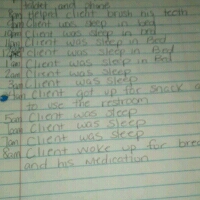 toilet and phone
8pm Helped client brush his teeth
9pm Client was sleep in bed
10pm Client was sleep in bed
11pm Client was sleep in Bed
Client was sleep in Bed
1am Client was sleep in Bed
2am Client was sleep
3am Client was sleep
Client got up for snack
to use the restroom
5am Client was sleep
6am Client was sleep
Client was sleep
8am Client woke up for
and his medication